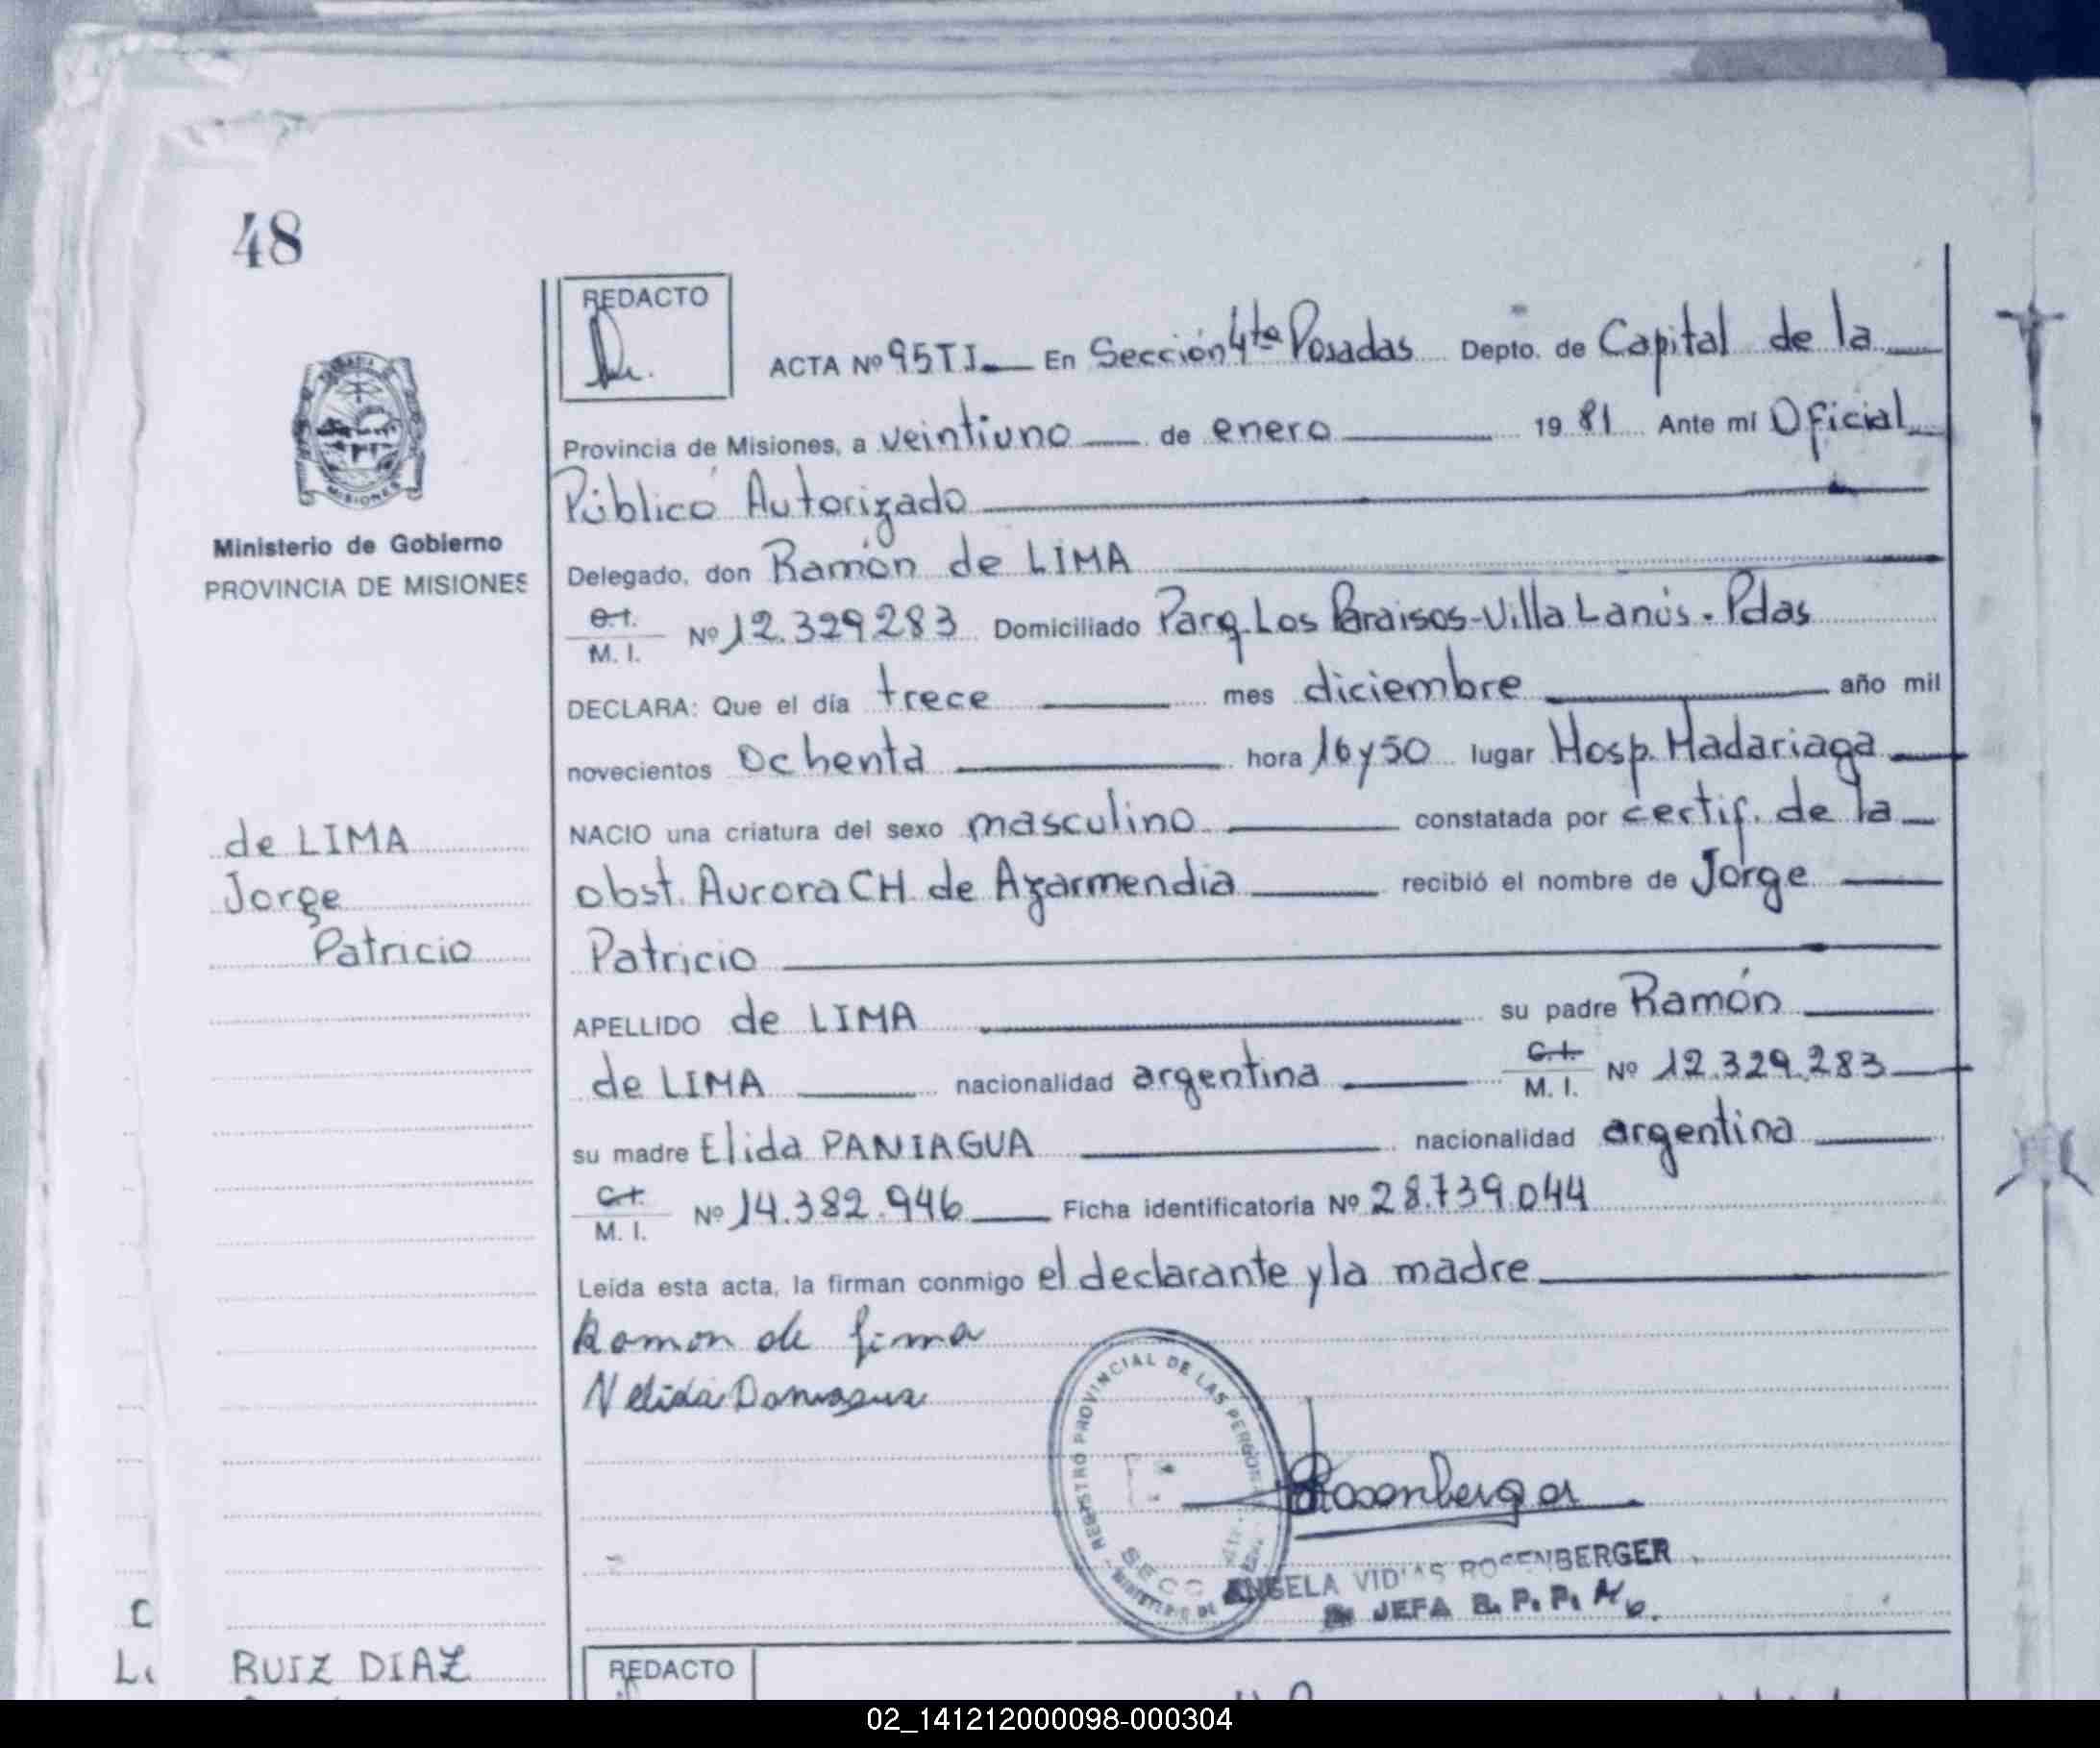 48
REDACTO
ACTA Nº 95TI En Sección 4ta Posadas Depto. de Capital de la
Provincia de Misiones, a veintiuno de enero 1981 Ante mí Oficial
Público Autorizado
MISIONES
Ministerio de Gobierno
PROVINCIA DE MISIONES
Delegado, don Ramón de LIMA
C.I.
M. I. Nº 12.329.283 Domiciliado Parq. Los Paraisos-Villa Lanús. Pdas
DECLARA: Que el día trece mes diciembre año mil
novecientos ochenta hora 16 y 50 lugar Hosp. Madariaga
de LIMA
Jorge
Patricio
NACIO una criatura del sexo masculino constatada por certif. de la
obst. Aurora CH. de Azarmendia recibió el nombre de Jorge
Patricio
APELLIDO de LIMA su padre Ramón
de LIMA nacionalidad argentina C.I. M. I. Nº 12.329.283
su madre Elida PANIAGUA nacionalidad argentina
C.I.
M. I. Nº 14.382.946 Ficha identificatoria Nº 28.739.044
Leída esta acta, la firman conmigo el declarante y la madre
Ramon de Lima
Nelida
REGISTRO PROVINCIAL DE LAS PERSONAS
Rosenberger
ANGELA ROSENBERGER
JEFA
RUIZ DIAZ
REDACTO
02_141212000098-000304